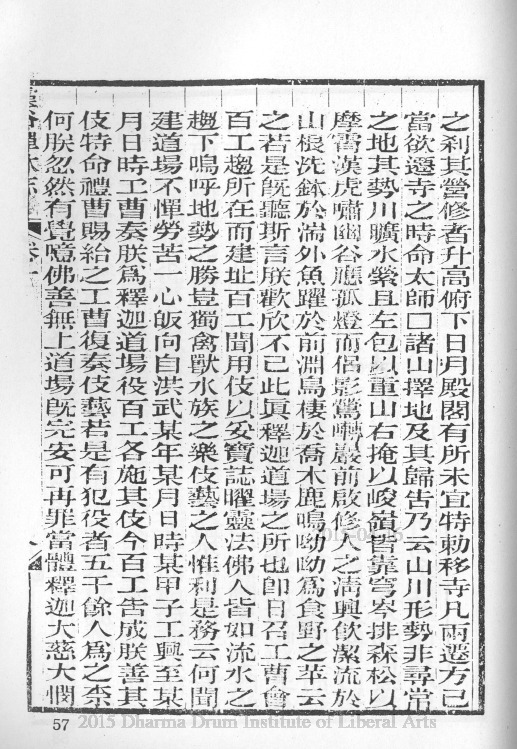 之剎其營修者升高俯下日月殿閣有所未宜特勅移寺凡兩遷方已
當欲遷寺之時命太師□諸山擇地及其歸告乃云山川形勢非尋常
之地其勢川曠水縈且左包以重山右掩以峻嶺皆靠穹岑排森松以
摩霄漢虎嘯幽谷應孤燈而侶影鶯囀巖前啟修人之清興飲潔流於
山根洗鉢於湍外魚躍於前淵鳥棲於喬木鹿鳴呦呦為食野之苹云
之若是既聽斯言朕歡欣不已此真釋迦道場之所也即日召工曹會
百工趨所在而建址百工聞用伎以安寶誌曜靈法佛人皆如流水之
趨下嗚呼地勢之勝豈獨禽獸水族之樂伎藝之人惟利是務云何聞
建道場不憚勞苦一心皈向自洪武某年某月日時某甲子工興至某
月日時工曹奏朕為釋迦道場役百工各施其伎今百工告成朕善其
伎特命禮曹賜給之工曹復奏伎藝若是有犯役者五千餘人為之柰
何朕忽然有覺噫佛善無上道場既完安可再罪當體釋迦大慈大憫
卷十
57
2015 Dharma Drum Institute of Liberal Arts